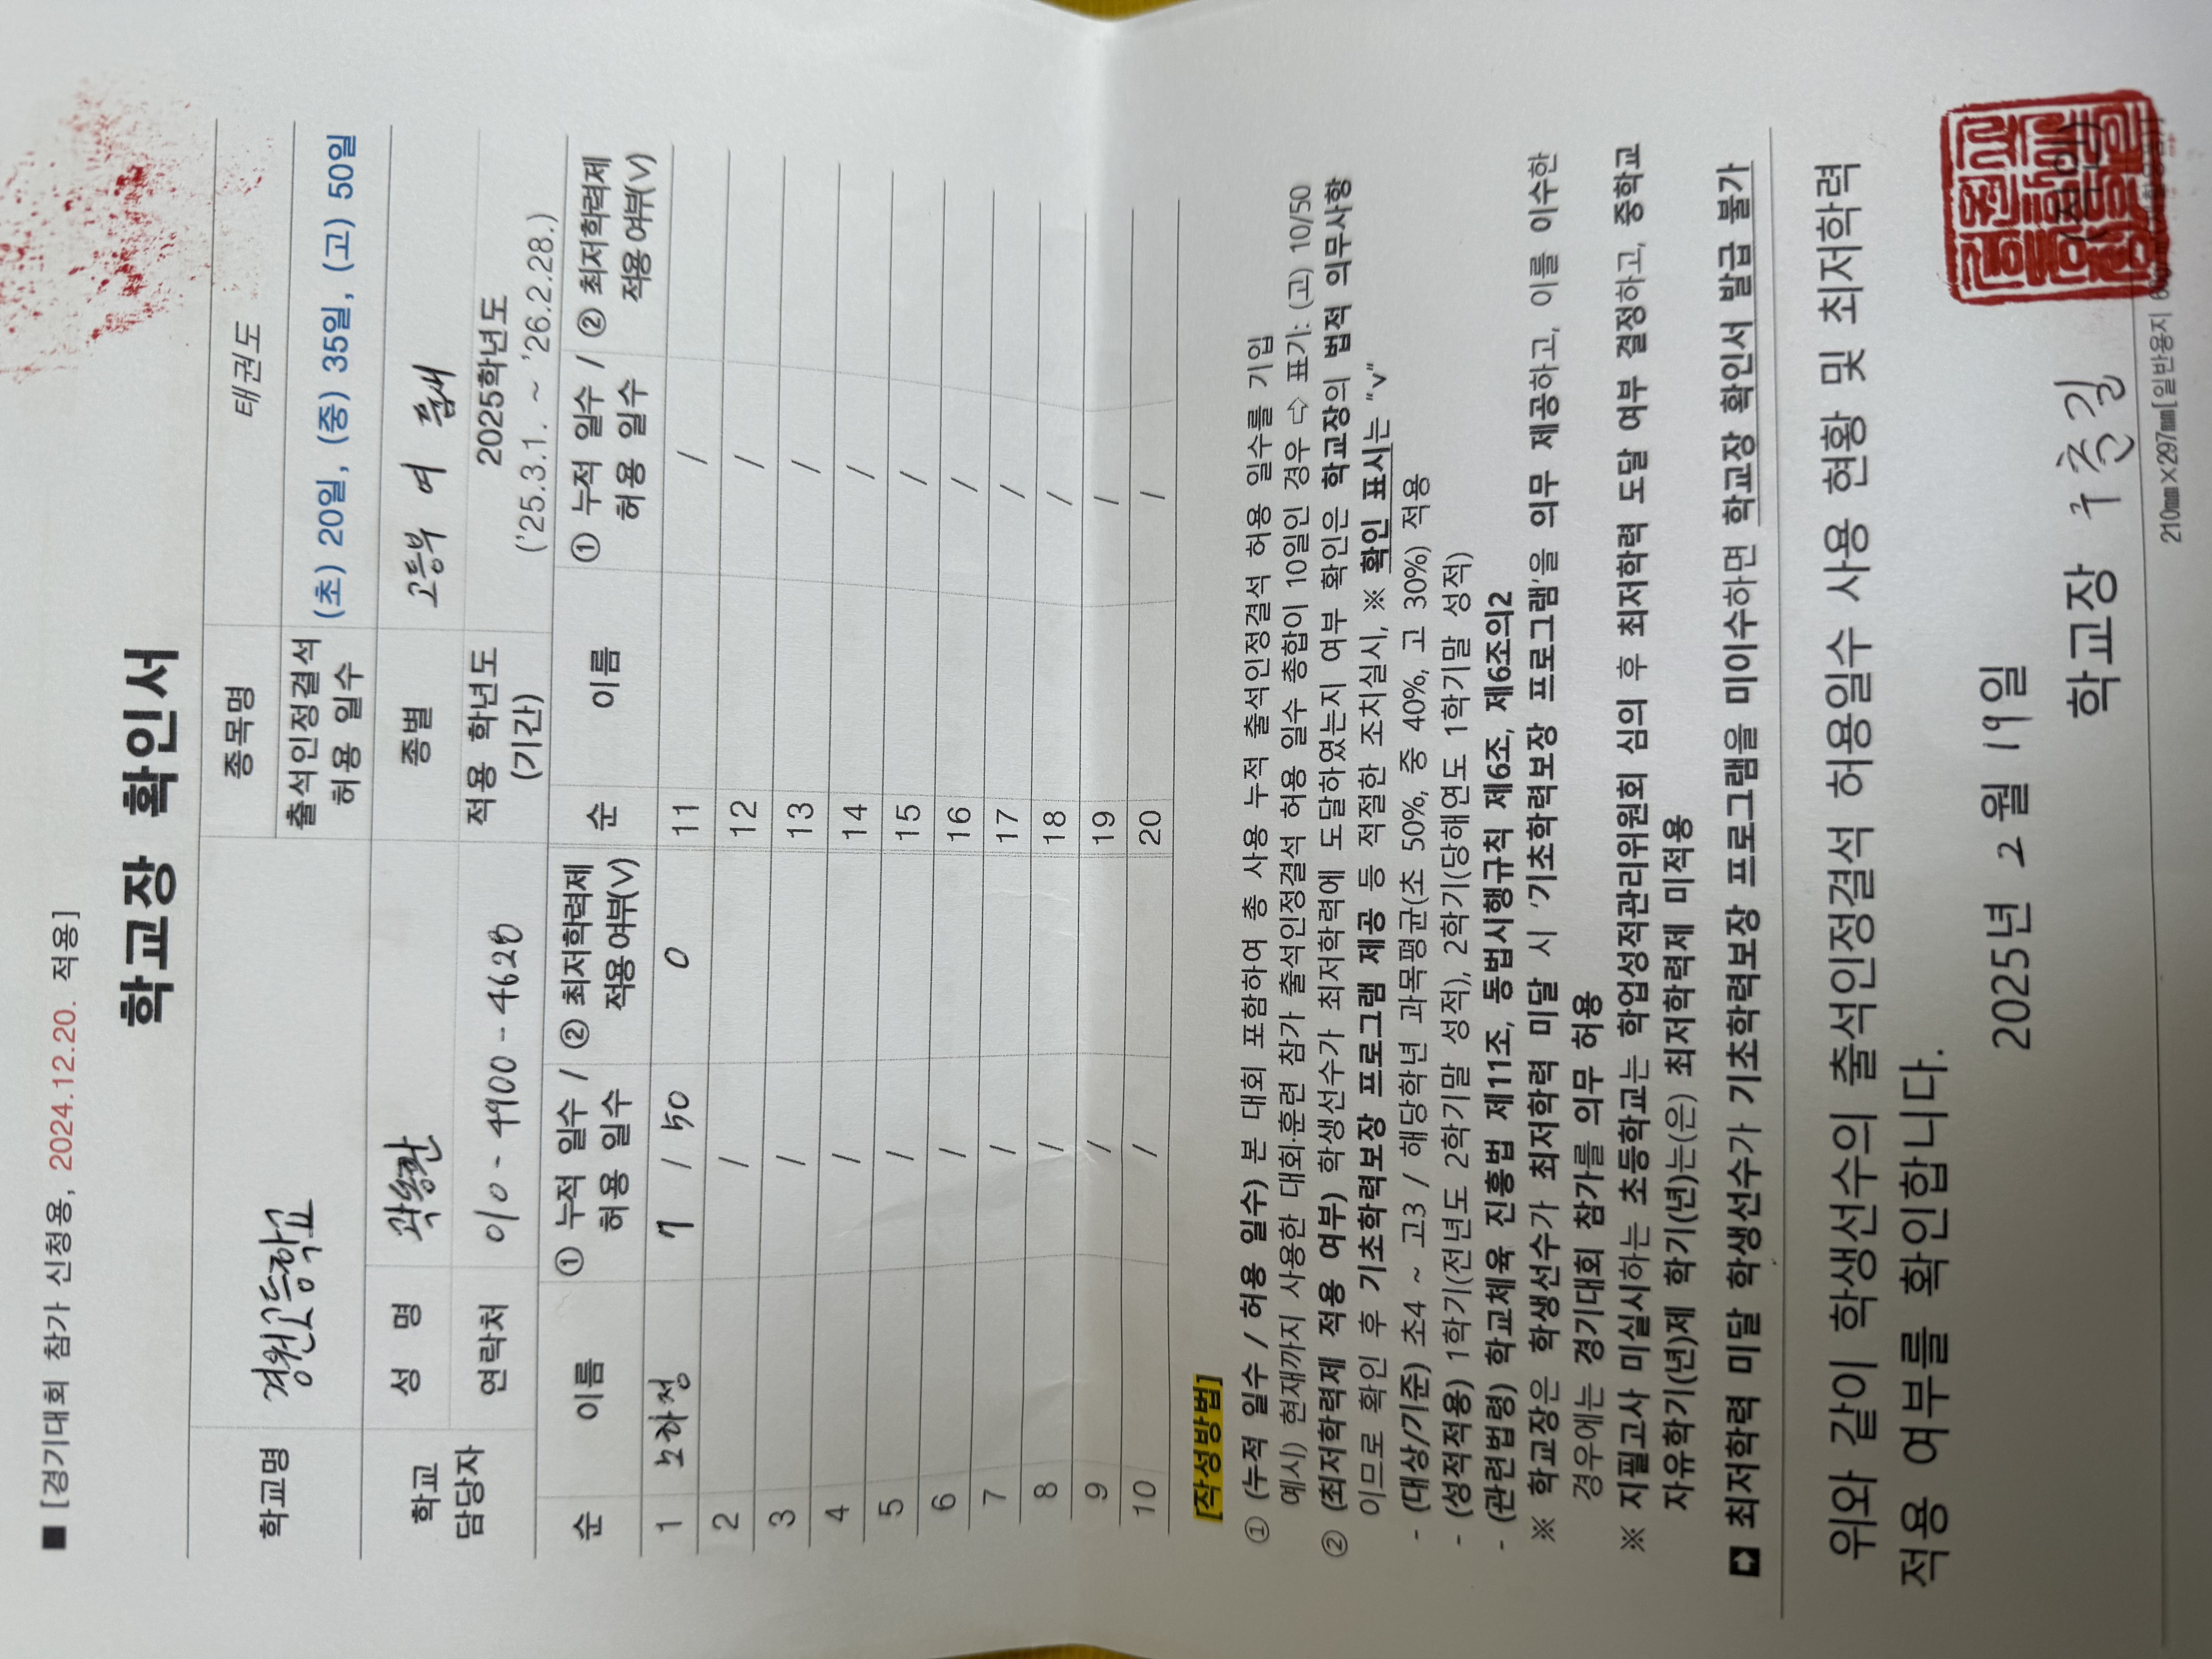 ■ [경기대회 참가 신청용, 2024.12.20. 적용]
학교장 확인서
학교명 경원고등학교 종목명 태권도
출석인정결석 허용 일수 (초) 20일, (중) 35일, (고) 50일
학교 담당자 성 명 종별 고등부 여 품새
연락처 010-4900-4628 적용 학년도 (기간) 2025학년도 ('25.3.1. ~ '26.2.28.)
순 이름 ① 누적 일수 / 허용 일수 ② 최저학력제 적용여부(V) 순 이름 ① 누적 일수 / 허용 일수 ② 최저학력제 적용여부(V)
1 노하정 7 / 50 0 11 /
2 / 12 /
3 / 13 /
4 / 14 /
5 / 15 /
6 / 16 /
7 / 17 /
8 / 18 /
9 / 19 /
10 / 20 /
[작성방법]
① (누적 일수 / 허용 일수) 본 대회 포함하여 총 사용 누적 출석인정결석 허용 일수를 기입
예시) 현재까지 사용한 대회·훈련 참가 출석인정결석 허용 일수 총합이 10일인 경우 ⇨ 표기: (고) 10/50
② (최저학력제 적용 여부) 학생선수가 최저학력에 도달하였는지 여부 확인은 학교장의 법적 의무사항
이므로 확인 후 기초학력보장 프로그램 제공 등 적절한 조치실시, ※ 확인 표시는 "v"
- (대상/기준) 초4 ~ 고3 / 해당학년 과목평균(초 50%, 중 40%, 고 30%) 적용
- (성적적용) 1학기(전년도 2학기말 성적), 2학기(당해연도 1학기말 성적)
- (관련법령) 학교체육 진흥법 제11조, 동법시행규칙 제6조, 제6조의2
※ 학교장은 학생선수가 최저학력 미달 시 '기초학력보장 프로그램'을 의무 제공하고, 이를 이수한
경우에는 경기대회 참가를 의무 허용
※ 지필고사 미실시하는 초등학교는 학업성적관리위원회 심의 후 최저학력 도달 여부 결정하고, 중학교
자유학기(년)제 학기(년)는(은) 최저학력제 미적용
최저학력 미달 학생선수가 기초학력보장 프로그램을 미이수하면 학교장 확인서 발급 불가
위와 같이 학생선수의 출석인정결석 허용일수 사용 현황 및 최저학력
적용 여부를 확인합니다.
2025년 2월 19일
학교장 구춘길 (직인)
210㎜×297㎜[일반용지 60